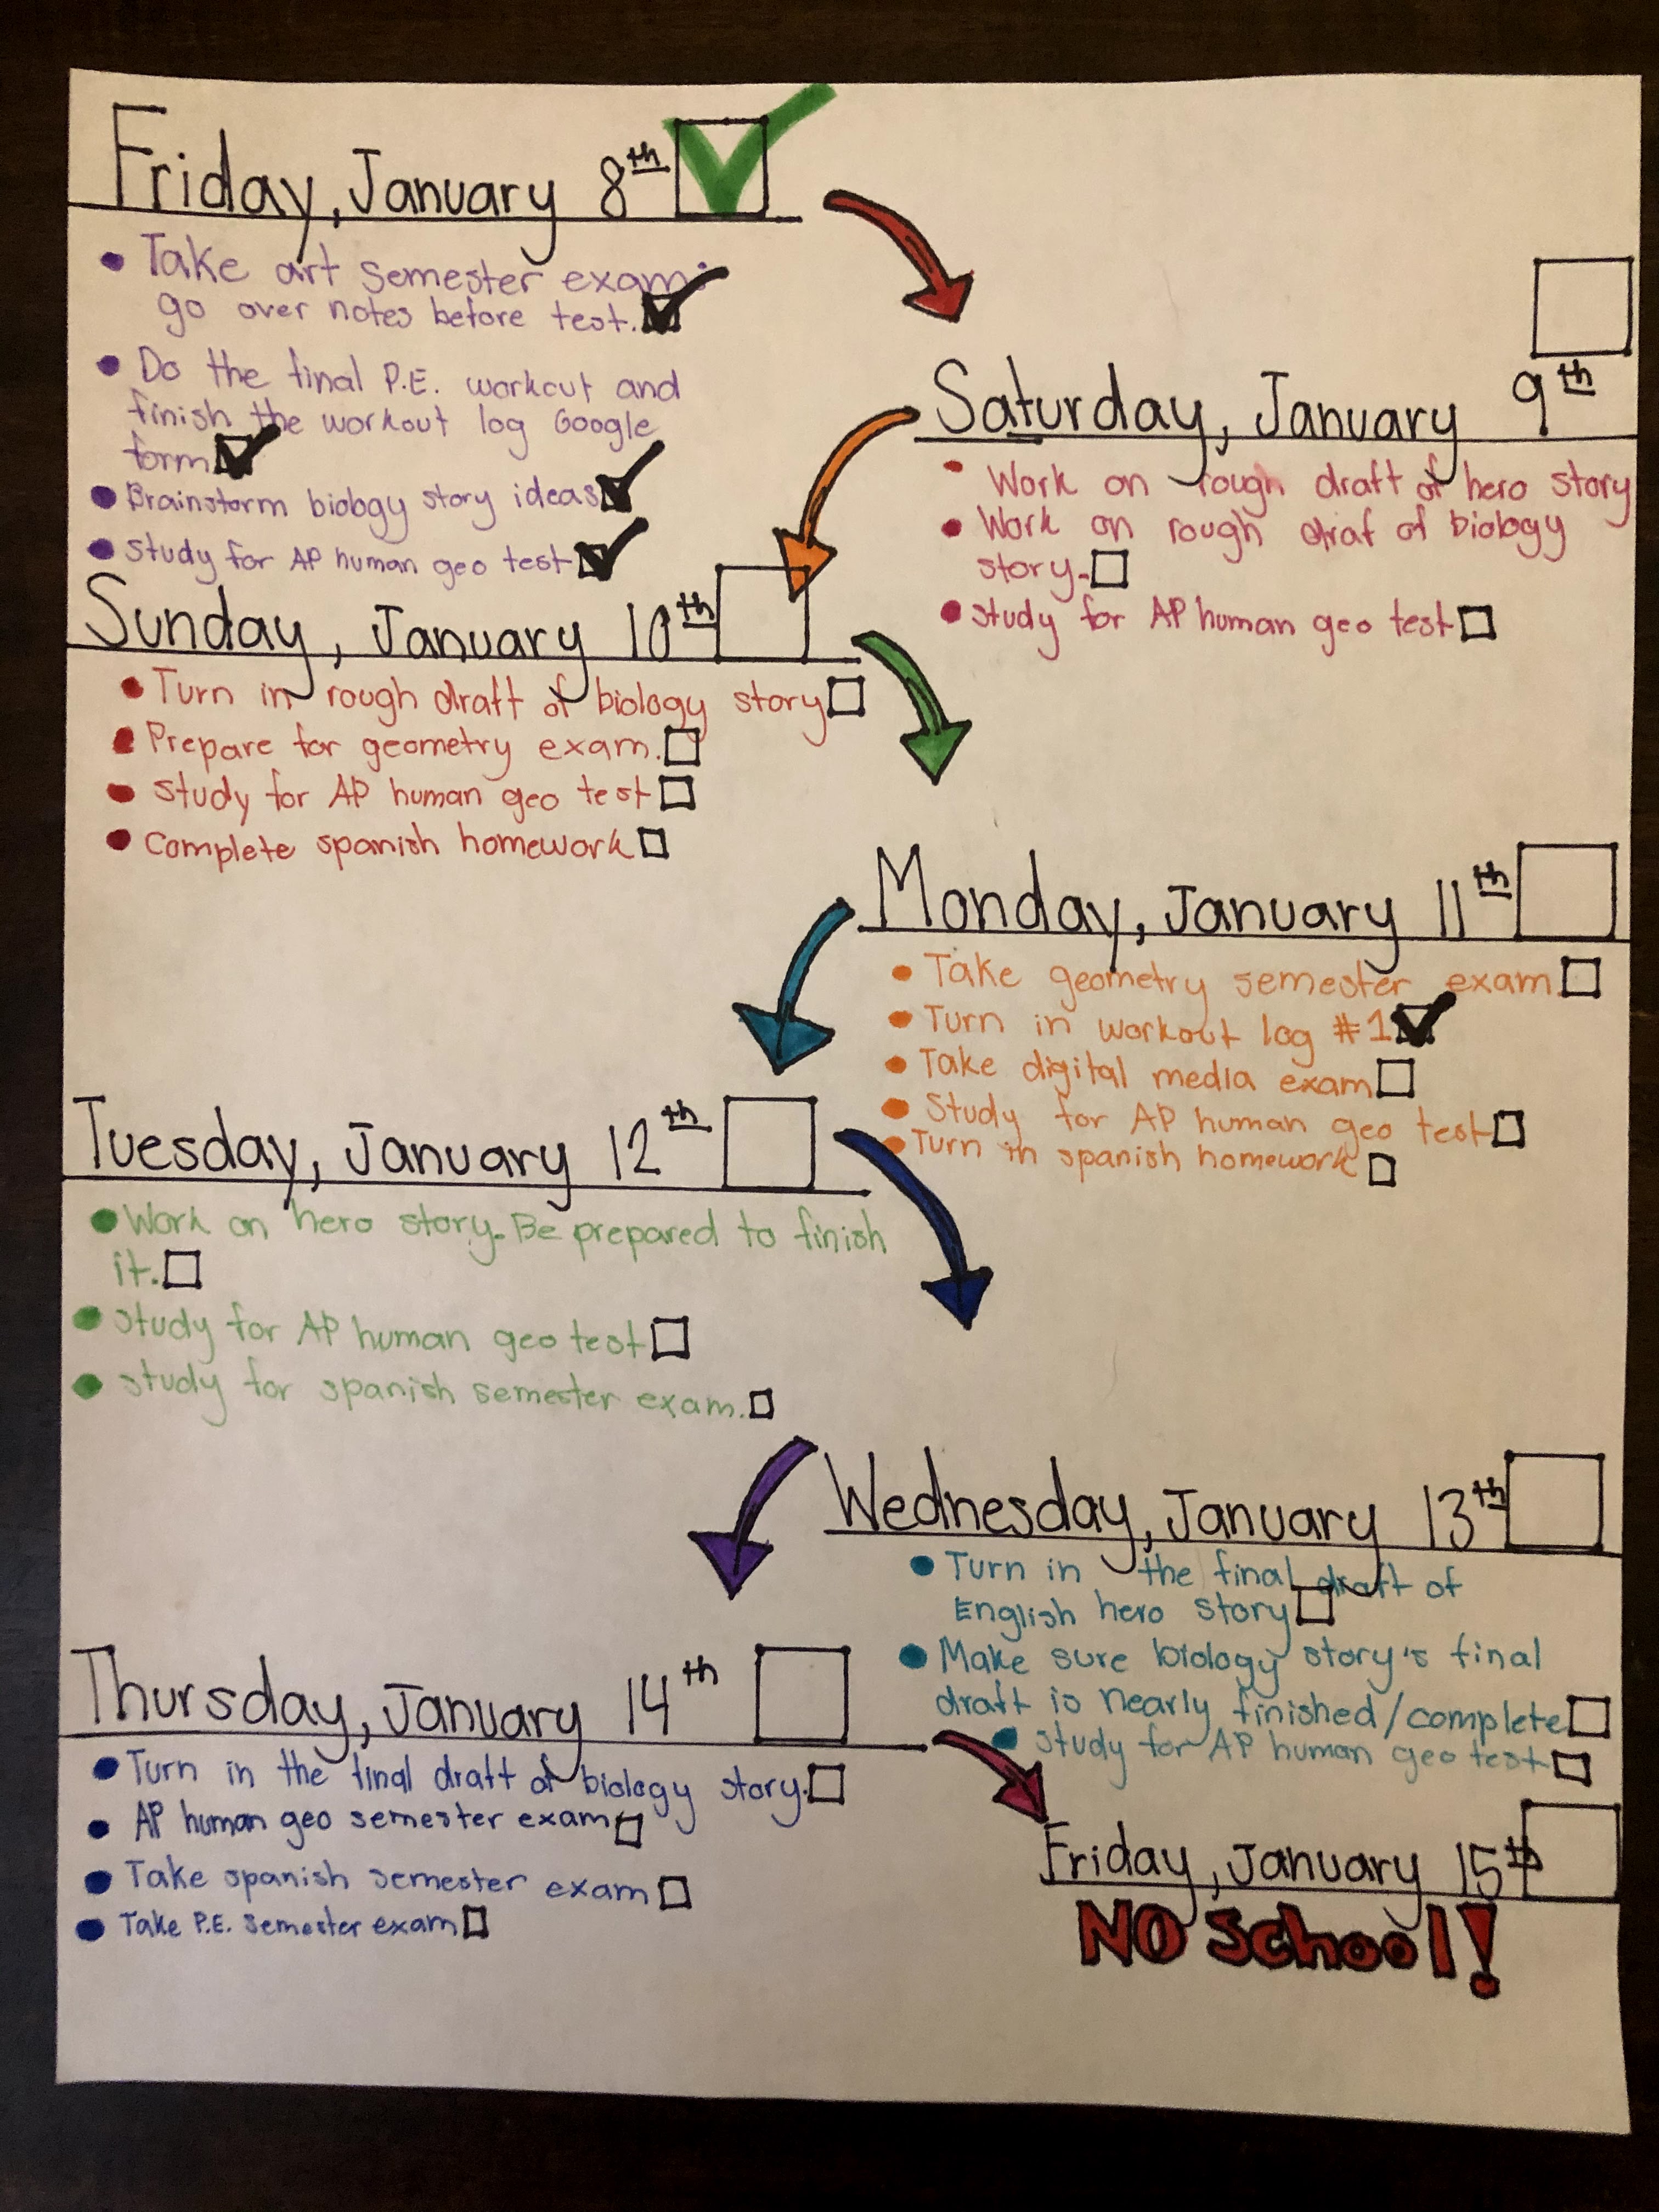 Friday, January 8th
Take art semester exam:
go over notes before test.
Do the final P.E. workout and
finish the workout log Google
form
Brainstorm biology story ideas
Study for AP human geo test
Saturday, January 9th
Work on rough draft of hero story
Work on rough draf of biology
story.
Study for AP human geo test
Sunday, January 10th
Turn in rough draft of biology story
Prepare for geometry exam.
Study for AP human geo test
Complete spanish homework
Monday, January 11th
Take geometry semester exam
Turn in workout log #1
Take digital media exam
Study for AP human geo test
Turn in spanish homework
Tuesday, January 12th
Work on hero story. Be prepared to finish
it.
Study for AP human geo test
Study for spanish semester exam.
Wednesday, January 13th
Turn in the final draft of
English hero story
Make sure biology story's final
draft is nearly finished/complete
Study for AP human geo test
Thursday, January 14th
Turn in the final draft of biology story.
AP human geo semester exam
Take spanish semester exam
Take P.E. semester exam
Friday, January 15th
NO School!